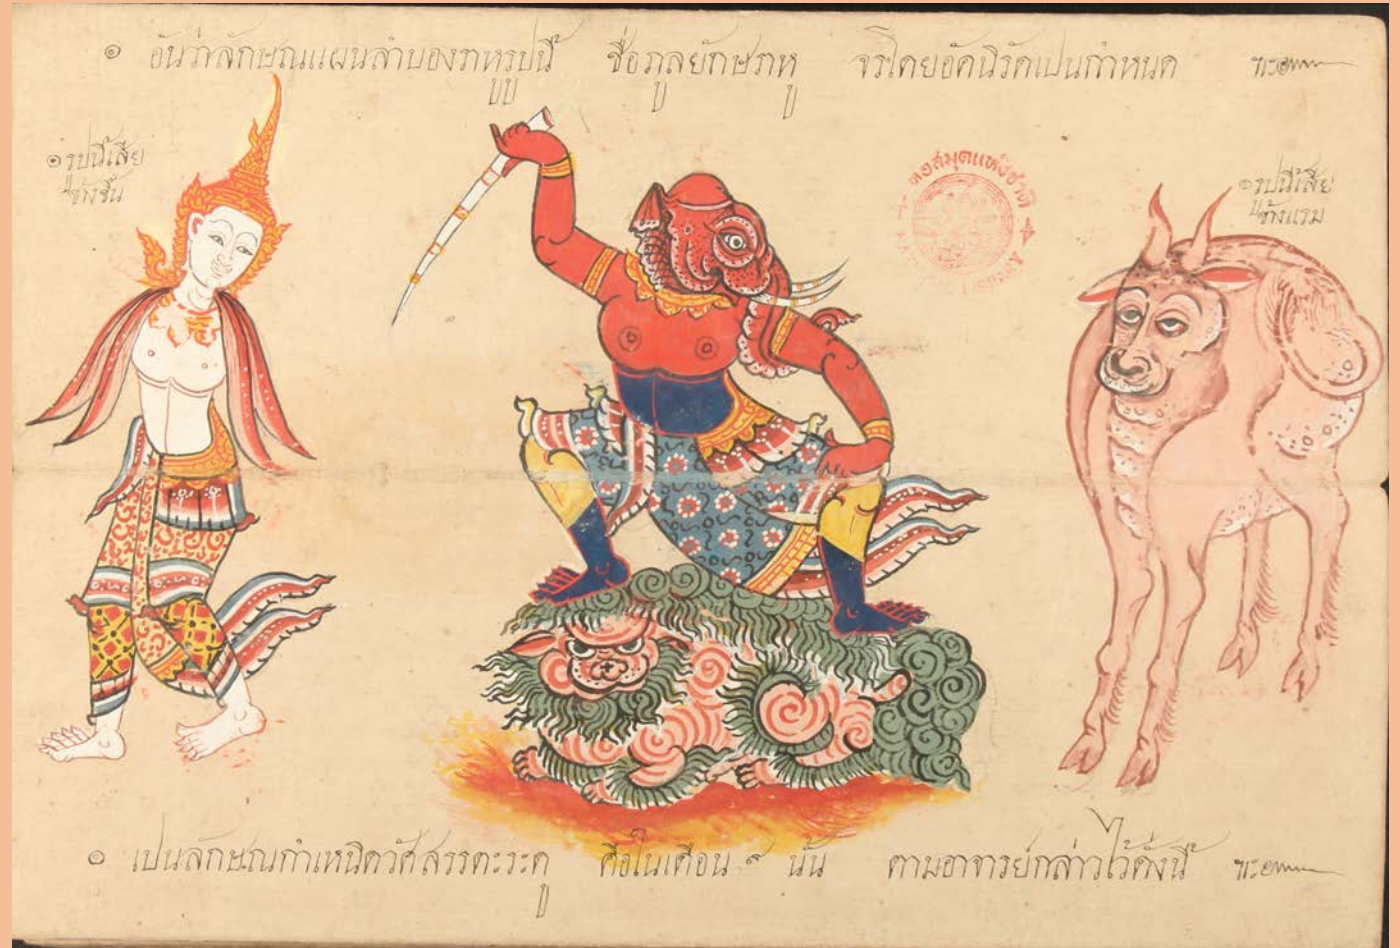 ๏ อันว่าลักษณแผนลำบองราหูรูปนี้ ชื่อภูลยักษราหู จรโดยอัคนิรัคเปนกำหนด
๏ รูปนี้เสีย
ข้างขึ้น
หอสมุดแห่งชาติ
LIBRARY
๏ รูปนี้เสีย
ข้างแรม
๏ เปนลักษณกำเหนิดวัศสรรตะระดู คือในเดือน ๙ นั้น ตามอาจารย์กล่าวไว้ดั่งนี้